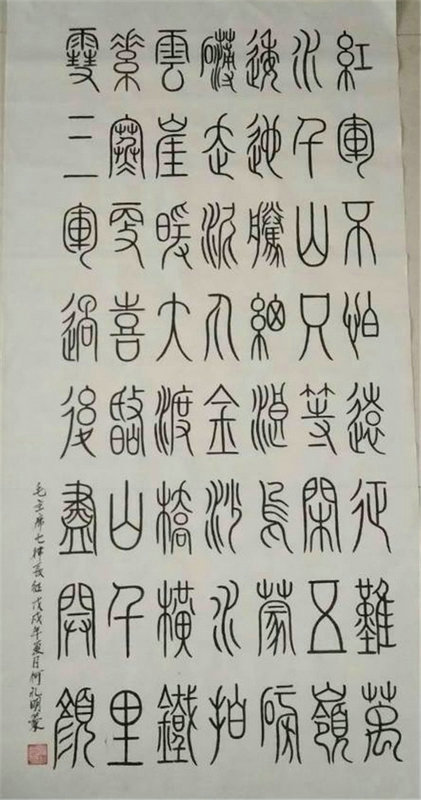 紅軍不怕遠征難萬
水千山只等閑五嶺
逶迤騰細浪烏蒙磅
礴走泥丸金沙水拍
雲崖暖大渡橋橫鐵
索寒更喜岷山千里
雪三軍過後盡開顏
毛主席七律長征戊戌年夏月何礼明篆